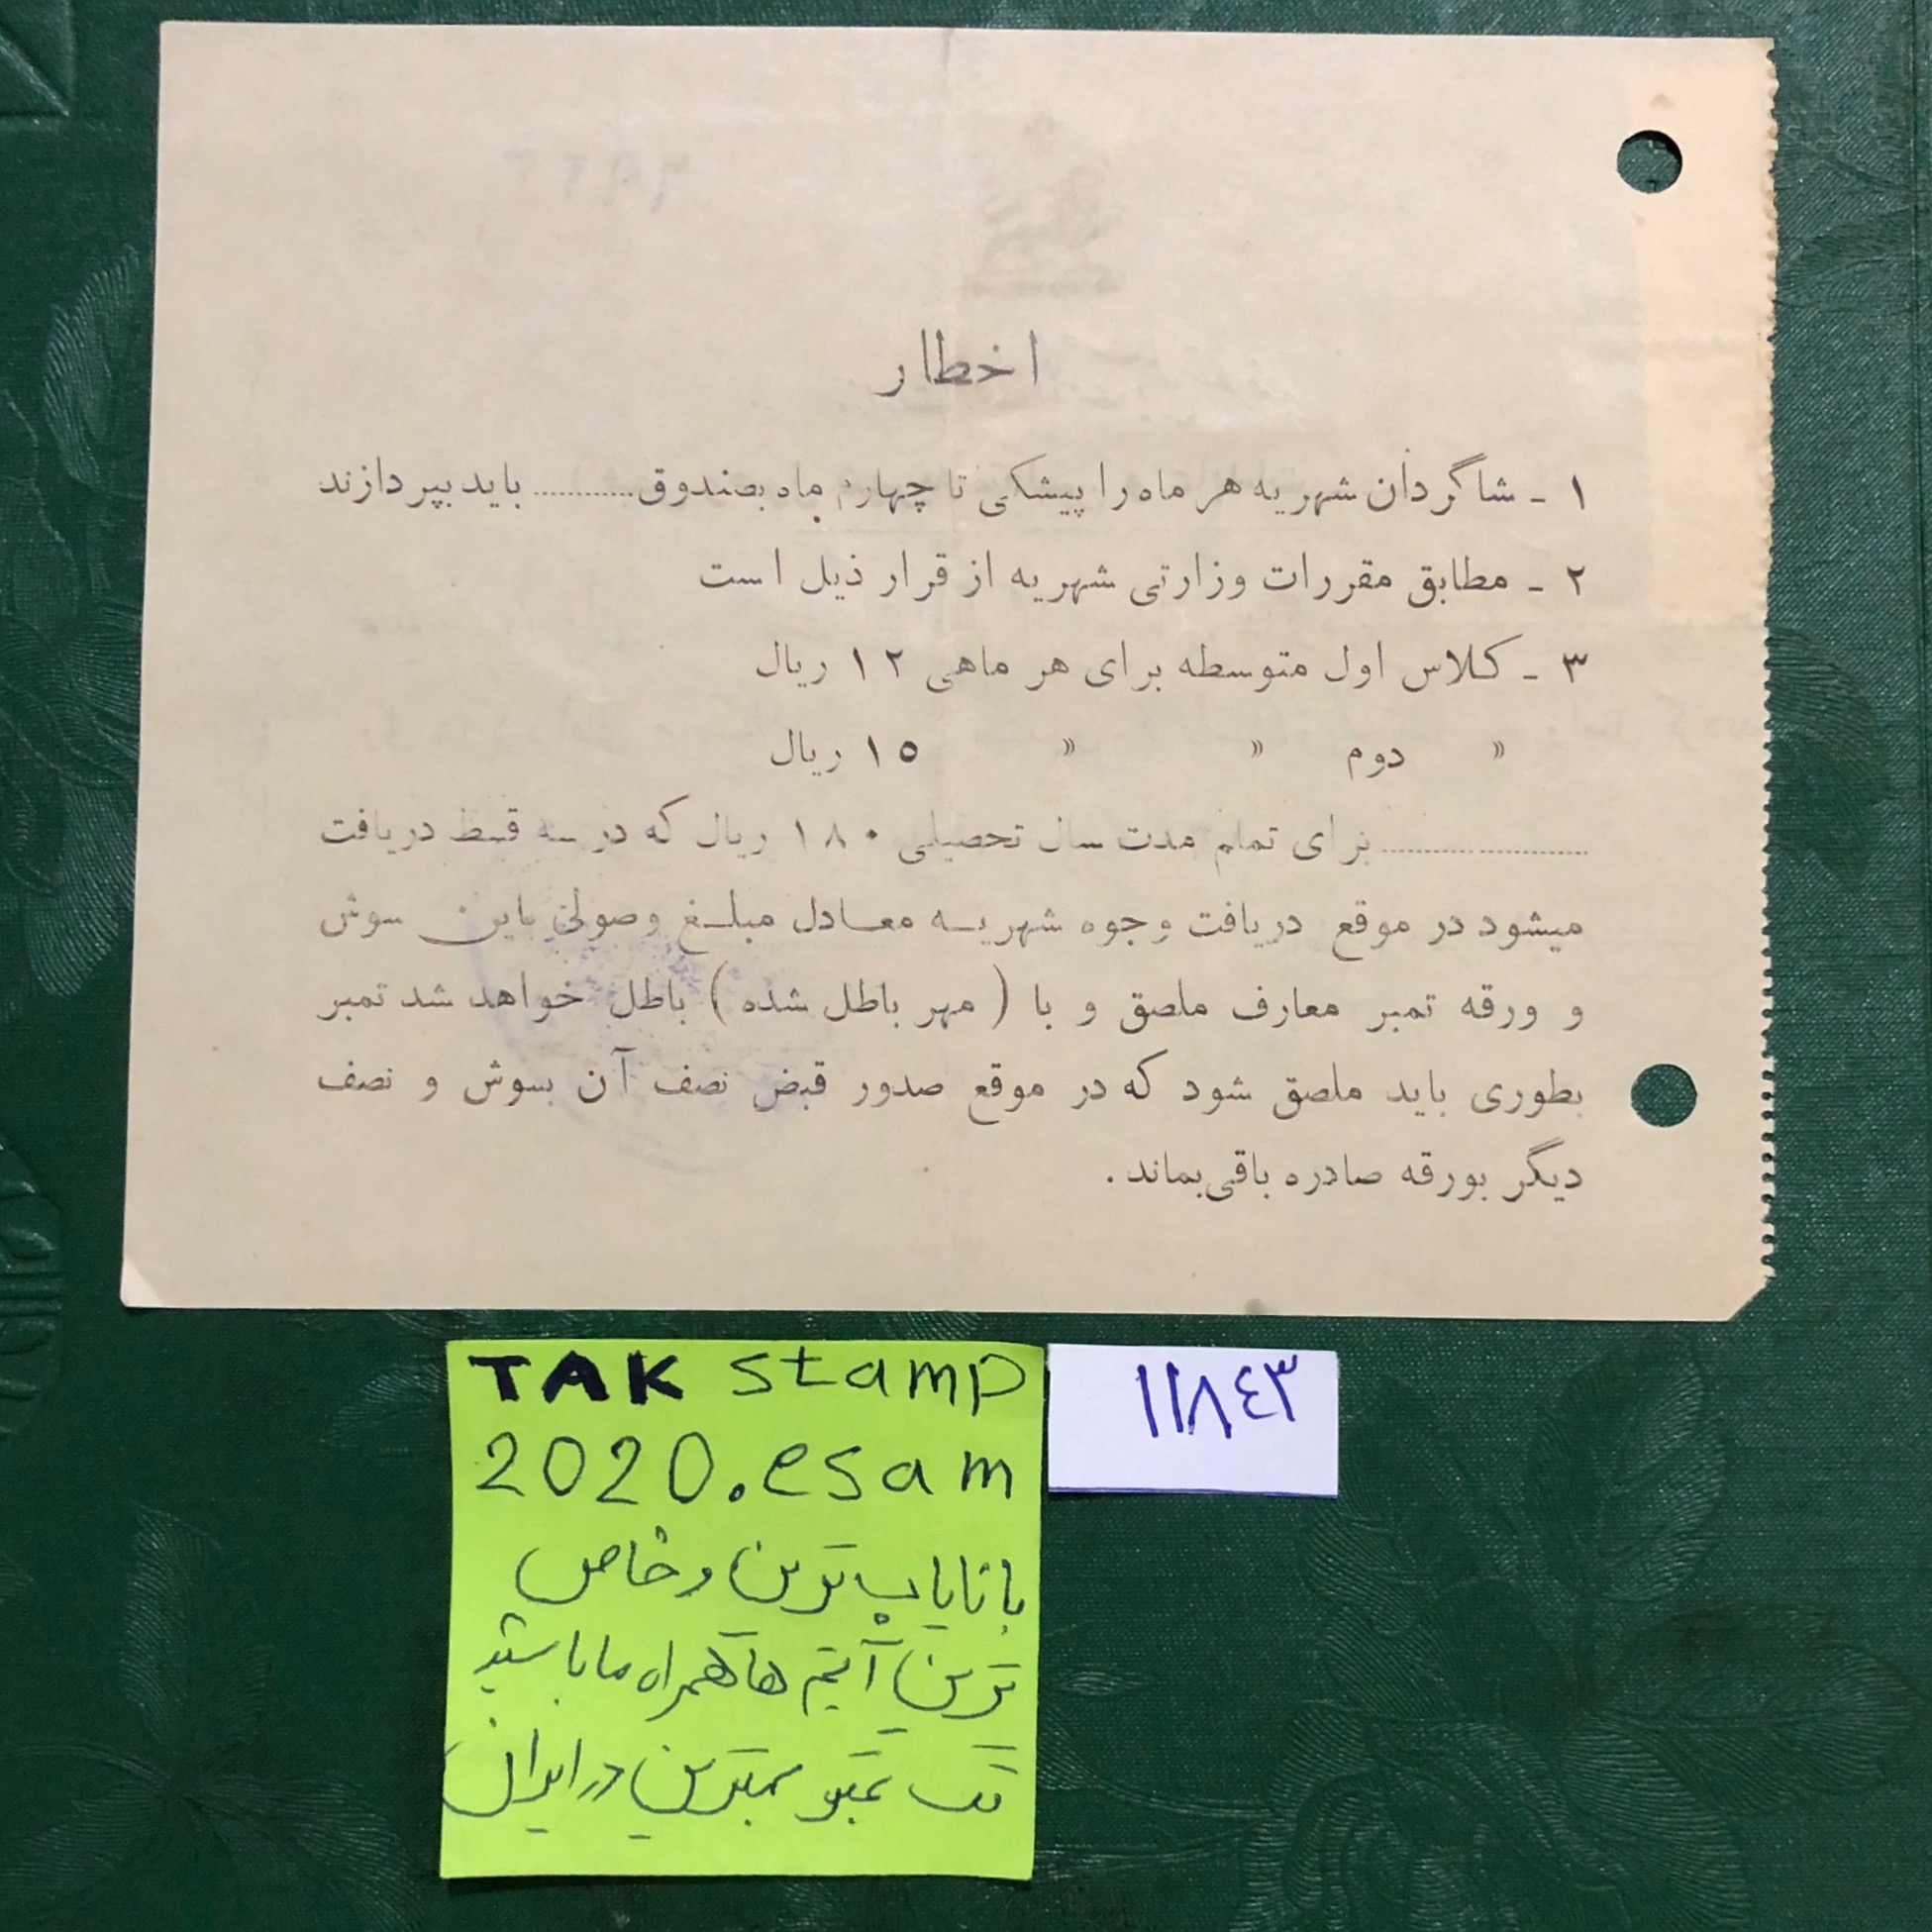 اخطار
۱ - شاگردان شهریه هر ماه را پیشکی تا چهارم ماه بصندوق ............ باید بپردازند
۲ - مطابق مقررات وزارتی شهریه از قرار ذیل است
۳ - کلاس اول متوسطه برای هر ماهی ۱۲ ریال
» دوم » » ۱۵ ریال
........................ برای تمام مدت سال تحصیلی ۱۸۰ ریال که در سه قسط دریافت
میشود در موقع دریافت وجوه شهریه معادل مبلغ وصولی باین سوش
و ورقه تمبر معارف ملصق و با ( مهر باطل شده ) باطل خواهد شد تمبر
بطوری باید ملصق شود که در موقع صدور قبض نصف آن بسوش و نصف
دیگر بورقه صادره باقی بماند .
TAK stamp
2020.esam
با نایاب ترین و خاص
ترین آیتم ها همراه ما باشید
تک تمبر بهترین در ایران
۱۱۸٤۳